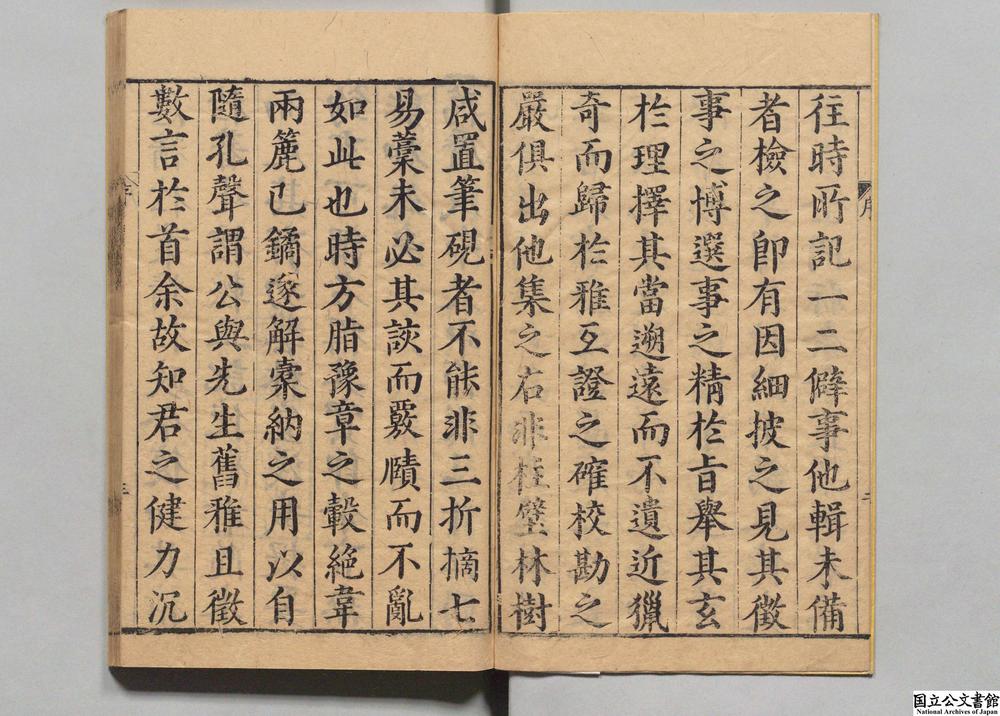 序
二
往時所記一二僻事他輯未備
者檢之卽有因細披之見其徵
事之博選事之精於旨舉其玄
於理擇其當遡遠而不遺近獵
奇而歸於雅互證之確校勘之
嚴俱出他集之右非桂壁林樹
咸置筆硯者不能非三折摘七
易藁未必其談而覈賾而不亂
如此也時方脂豫章之轂絶韋
兩簏已鐍遂解橐納之用以自
隨孔聲謂公與先生舊雅且徵
數言於首余故知君之健力沉
三
国立公文書館
National Archives of Japan